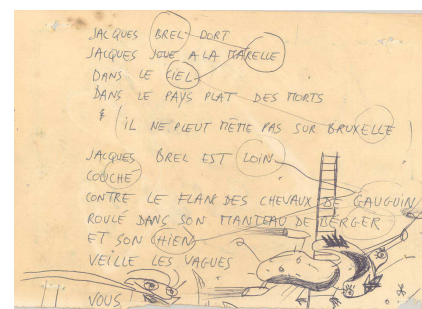 JACQUES BREL DORT
JACQUES JOUE A LA MARELLE
DANS LE CIEL
DANS LE PAYS PLAT DES MORTS
& (IL NE PLEUT MÊME PAS SUR BRUXELLE)
JACQUES BREL EST LOIN
COUCHÉ
CONTRE LE FLANC DES CHEVAUX DE GAUGUIN
ROULE DANS SON MANTEAU DE BERGER
ET SON CHIEN
VEILLE LES VAGUES
VOUS